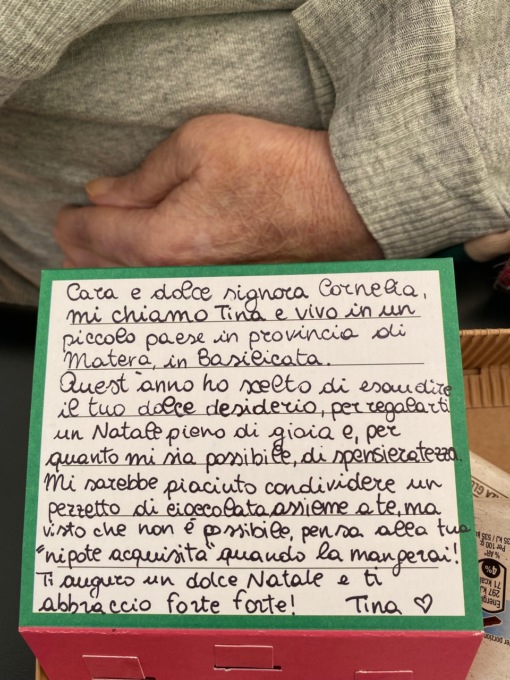 Cara e dolce signora Cornelia,
mi chiamo Tina e vivo in un
piccolo paese in provincia di
Matera, in Basilicata.
Quest'anno ho scelto di esaudire
il tuo dolce desiderio, per regalarti
un Natale pieno di gioia e, per
quanto mi sia possibile, di spensieratezza.
Mi sarebbe piaciuto condividere un
pezzetto di cioccolata assieme a te, ma
visto che non è possibile, pensa alla tua
"nipote acquisita" quando la mangerai!
Ti auguro un dolce Natale e ti
abbraccio forte forte! Tina ♡
Per 100 g
% AR*
4%
297 kJ
71 kcal